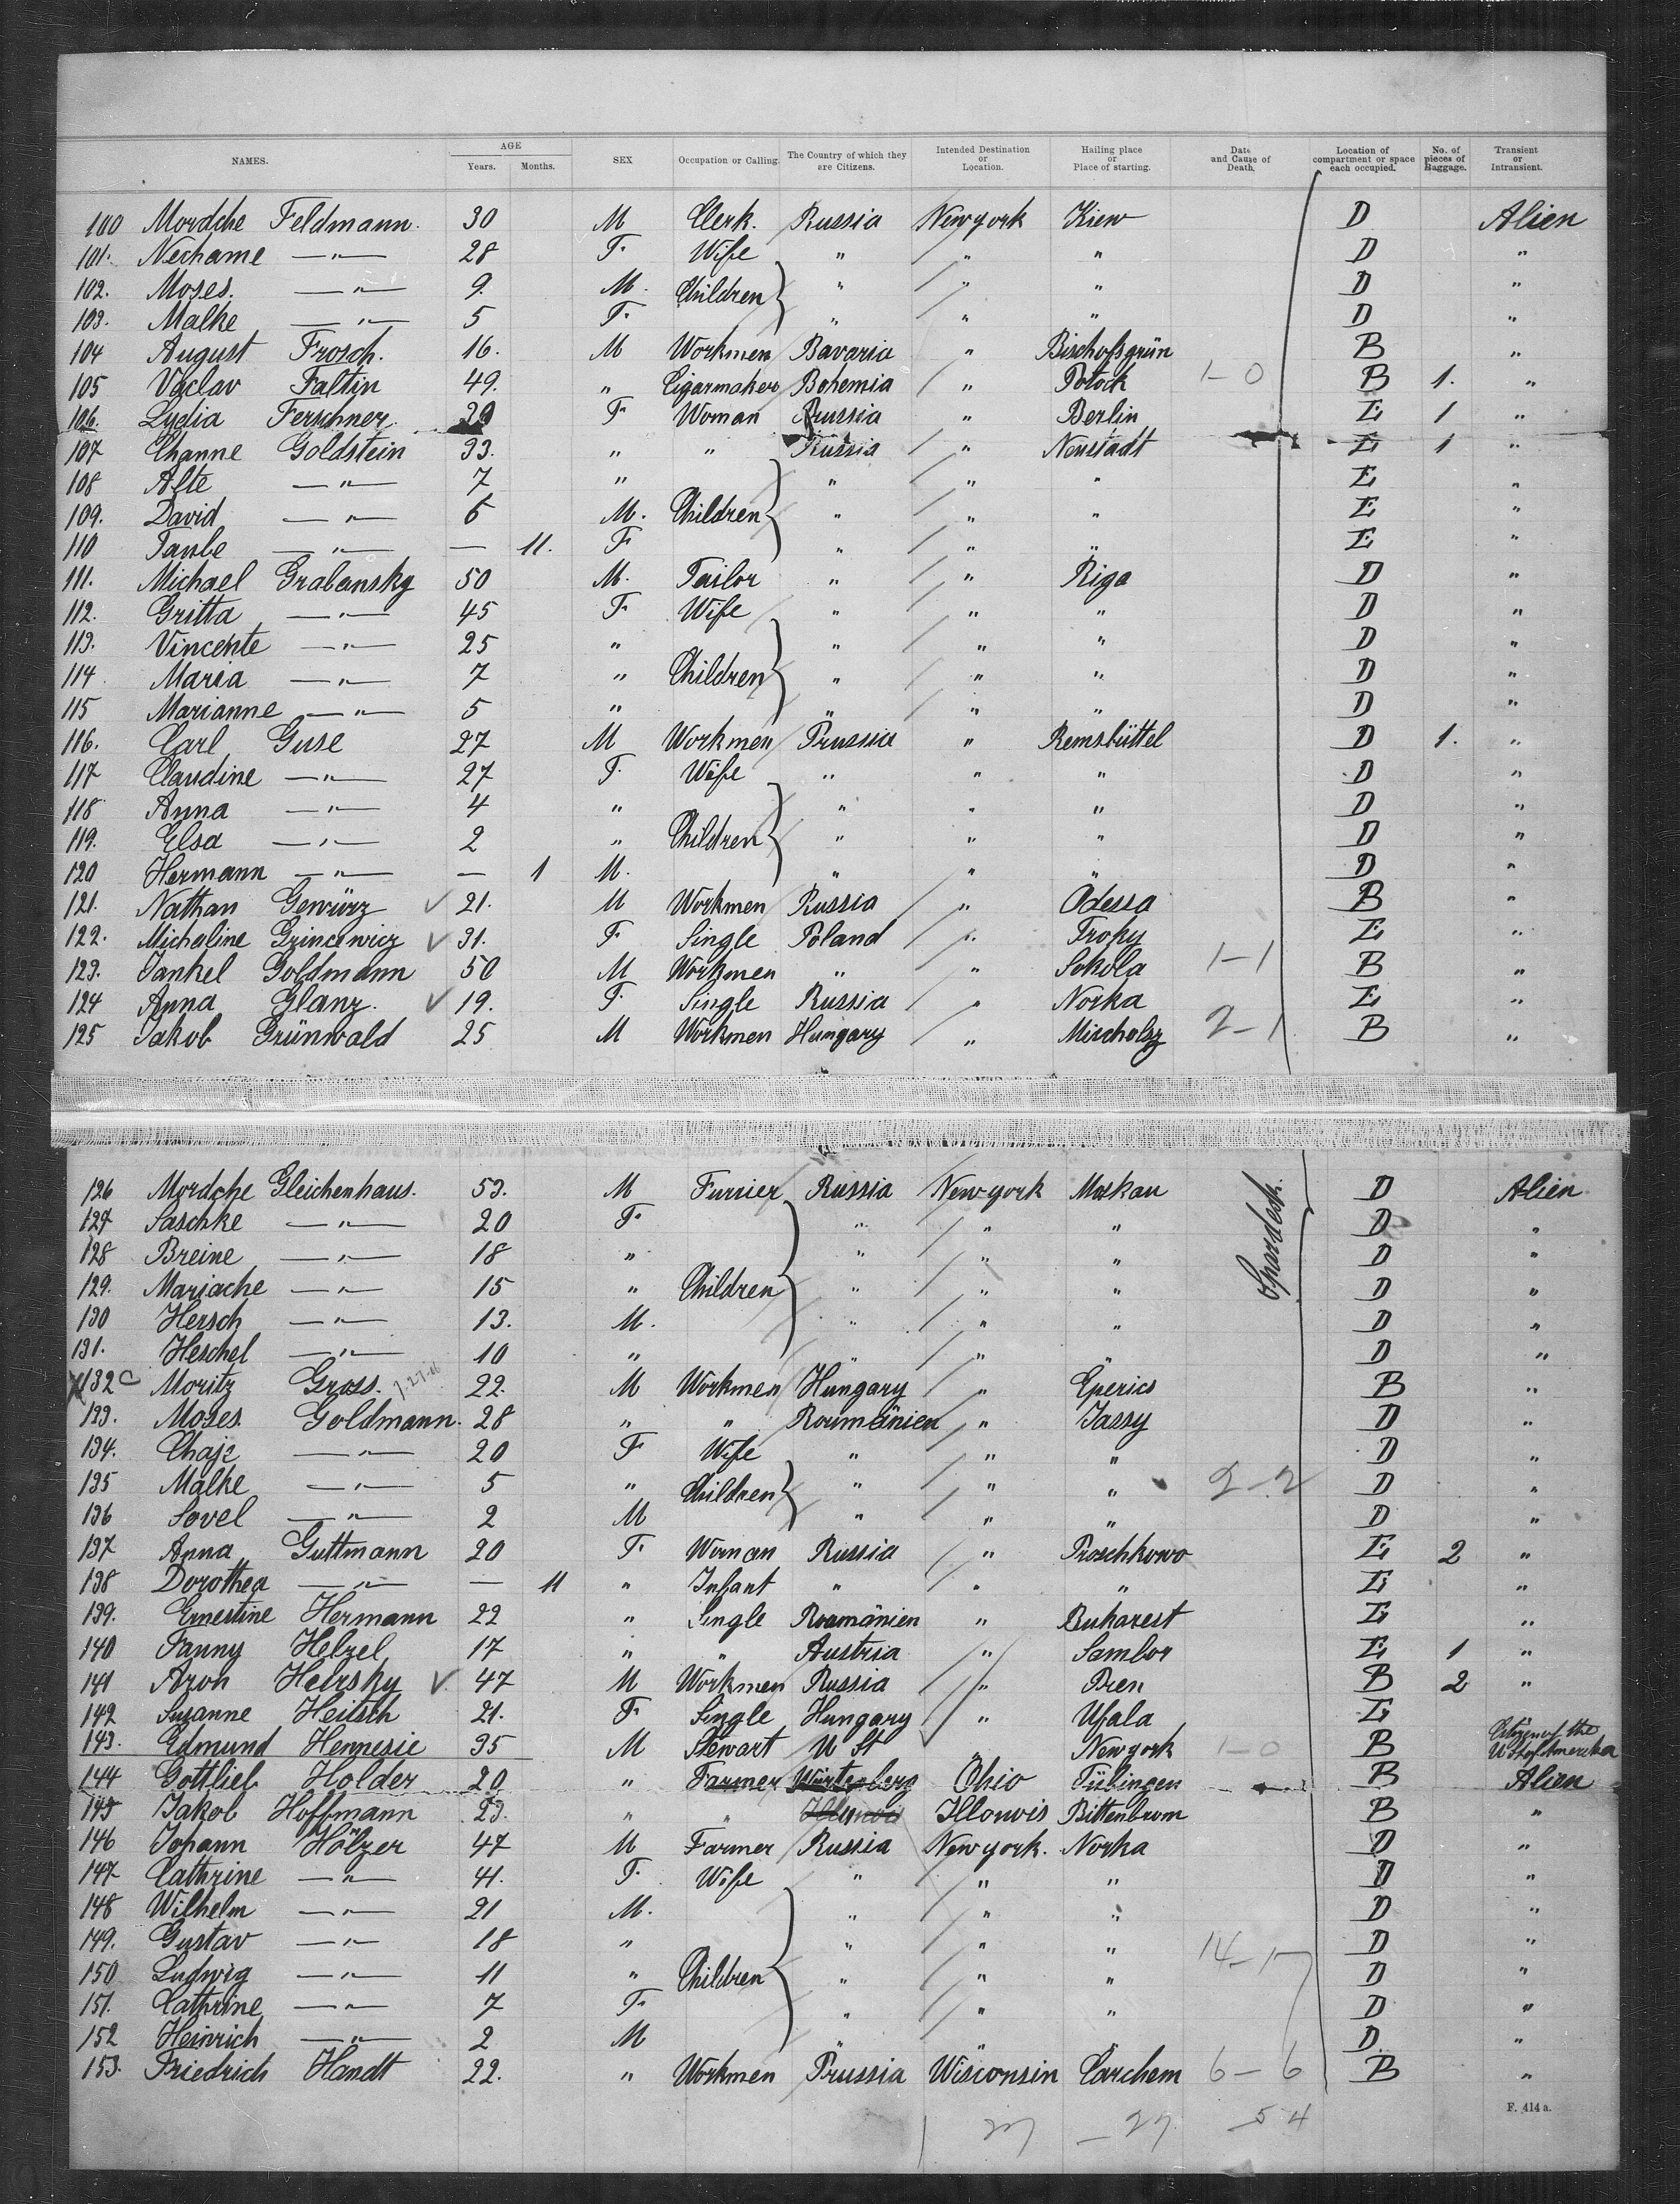 NAMES. AGE Years. Months. SEX Occupation or Calling. The Country of which they are Citizens. Intended Destination or Location. Hailing place or Place of starting. Date and Cause of Death. Location of compartment or space each occupied. No. of pieces of Baggage. Transient or Intransient.
100 Mordche Feldmann. 30 M Clerk. Russia New york Kiew D Alien
101. Nechame —"— 28 F. Wife " " " D "
102. Moses. —"— 9. M. Children " " " D "
103. Malke —"— 5 F. " " " D "
104 August Frosch. 16. M Workmen Bavaria " Bischofsgrün B "
105 Vaclav Faltin 49. " Cigarmaker Bohemia " Potock 1-0 B 1. "
106. Lydia Ferschner 20 F. Woman Prussia " Berlin E 1 "
107 Channe Goldstein 33. " " Russia " Neustadt E 1 "
108 Alte —"— 7 " " " " E "
109. David —"— 6 M. Children " " " E "
110 Taube —"— — 11. F " " " E "
111. Michael Grabansky 50 M. Tailor " " Riga D "
112. Gritta —"— 45 F. Wife " " " D "
113. Vincente —"— 25 " " " " D "
114 Maria —"— 7 " Children " " " D "
115 Marianne —"— 5 " " " " D "
116. Carl Guse 27 M Workmen Prussia " Remsbüttel D 1. "
117 Claudine —"— 27 F. Wife " " " D "
118 Anna —"— 4 " " " " D "
119. Elsa —"— 2 " Children " " " D "
120 Hermann —"— — 1 M. " " " D "
121. Nathan Gewürz 21. M Workmen Russia " Odessa B "
122. Micheline Grincewicz 31. F. Single Poland " Tropy E "
123. Jankel Goldmann 50 M Workmen " " Sokola 1-1 B "
124 Anna Glanz. 19. F. Single Russia " Norka E "
125 Jakob Grünwald 25 M Workmen Hungary " Mischolsz 2-1 B "
126 Mordche Gleichenhaus. 53. M Furrier Russia New york Moskau Spardeck. D Alien
127 Saschke —"— 20 F. " " " D "
128 Breine —"— 18 " " " " D "
129. Mariache —"— 15 " Children " " " D "
130 Hersch —"— 13. M. " " " D "
131. Heschel —"— 10 " " " " D "
132 Moritz Gross. 22. M Workmen Hungary " Eperies B "
133. Moses Goldmann. 28 " " Roumänien " Jassy D "
134. Chaje —"— 20 F Wife " " " D "
135 Malke —"— 5 " Children " " " 2-2 D "
136 Sovel —"— 2 M " " " D "
137 Anna Guttmann 20 F. Woman Russia " Proschkowo E 2 "
138 Dorothea —"— — 11 " Infant " " " E "
139. Ernestine Hermann 22 " Single Roumänien " Bukarest E "
140 Fanny Helzel 17 " " Austria " Sambor E 1 "
141 Aron Heirsky 47 M Workmen Russia " Pren B 2 "
142 Susanne Heitsch 21. F. Single Hungary " Ufala E "
143. Edmund Hennesie 35 M Stewart U St New york 1-0 B Citizen of the U St of Amerika
144 Gottlieb Holder 20 " Farmer Würtenberg Ohio Tübingen B Alien
145 Jakob Hoffmann 23. " " Illinois Illonois Bittenbrom B "
146 Johann Hölzer 47 M Farmer Russia New york. Norka D "
147 Cathrine —"— 41. F. Wife " " " D "
148 Wilhelm —"— 21 M. " " " D "
149. Gustav —"— 18 " " " " D "
150 Ludwig —"— 11 " Children " " " 14-1 D "
151. Cathrine —"— 7 F. " " " D "
152 Heinrich —"— 2 M " " " D. "
153. Friedrich Handt 22. " Workmen Prussia Wisconsin Carchem 6-6 B "
27 - 27 54
F. 414 a.